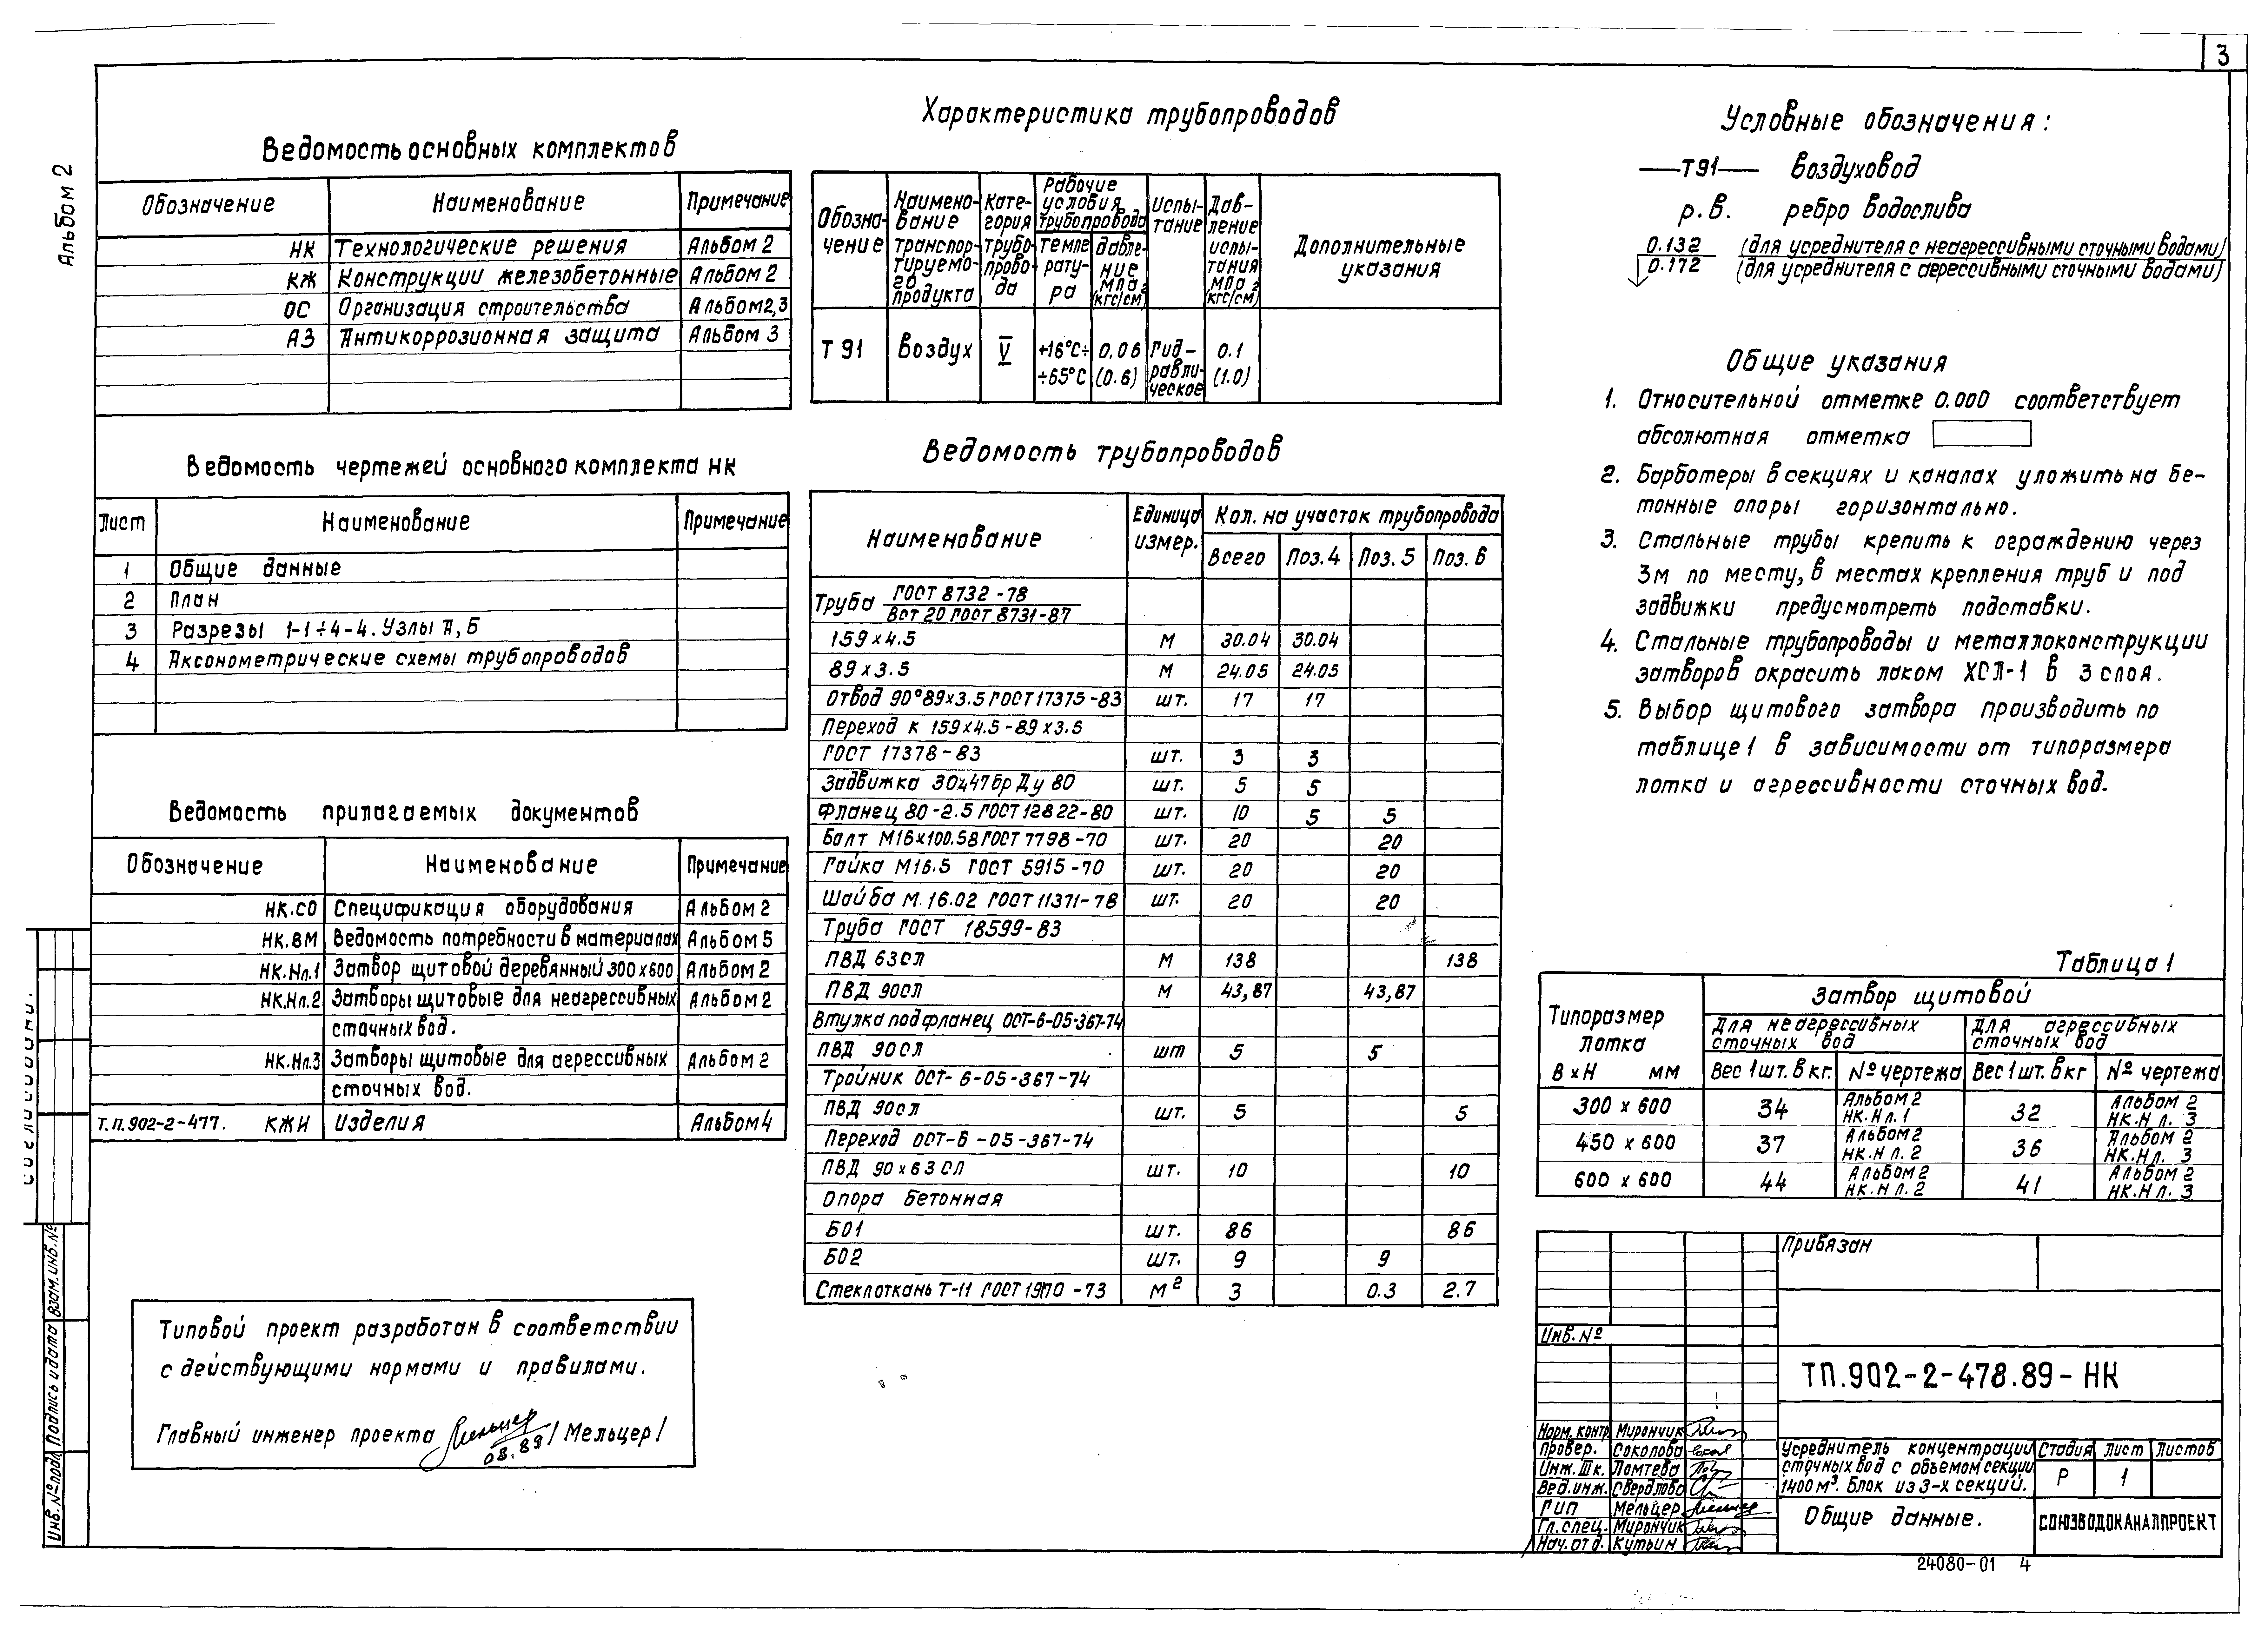 3
Альбом 2
Ведомость основных комплектов
Обозначение Наименование Примечание
НК Технологические решения Альбом 2
КЖ Конструкции железобетонные Альбом 2
ОС Организация строительства Альбом 2,3
АЗ Антикоррозионная защита Альбом 3
Ведомость чертежей основного комплекта НК
Лист Наименование Примечание
1 Общие данные
2 План
3 Разрезы 1-1÷4-4. Узлы А, Б
4 Аксонометрические схемы трубопроводов
Ведомость прилагаемых документов
Обозначение Наименование Примечание
НК.СО Спецификация оборудования Альбом 2
НК.ВМ Ведомость потребности в материалах Альбом 5
НК.Нл.1 Затвор щитовой деревянный 300х600 Альбом 2
НК.Нл.2 Затворы щитовые для неагрессивных Альбом 2
сточных вод.
НК.Нл.3 Затворы щитовые для агрессивных Альбом 2
сточных вод.
Т.П.902-2-477. КЖИ Изделия Альбом 4
Типовой проект разработан в соответствии
с действующими нормами и правилами.
Главный инженер проекта Мельцер 08.89 /Мельцер/
Характеристика трубопроводов
Обозна-
чение
Наимено-
вание
транспор-
тируемо-
го
продукта
Кате-
гория
трубо-
прово-
да
Рабочие
условия
трубопровода
темпе
рату-
ра
давле-
ние
МПа
(кгс/см²)
Испы-
тание
Дав-
ление
испы-
тания
МПа
(кгс/см²)
Дополнительные
указания
Т 91 Воздух V +16°С÷ 0.06 Гид- 0.1
÷65°С (0.6) равли- (1.0)
ческое
Ведомость трубопроводов
Наименование Единица измер. Кол. на участок трубопровода
Всего Поз. 4 Поз. 5 Поз. 6
Труба ГОСТ 8732-78
Вст 20 ГОСТ 8731-87
159х4.5 М 30.04 30.04
89х3.5 М 24.05 24.05
Отвод 90° 89х3.5 ГОСТ 17375-83 шт. 17 17
Переход К 159х4.5-89х3.5
ГОСТ 17378-83 шт. 3 3
Задвижка 30ч47бр Ду 80 шт. 5 5
Фланец 80-2.5 ГОСТ 12822-80 шт. 10 5 5
Болт М16х100.58 ГОСТ 7798-70 шт. 20 20
Гайка М16.5 ГОСТ 5915-70 шт. 20 20
Шайба М.16.02 ГОСТ 11371-78 шт. 20 20
Труба ГОСТ 18599-83
ПВД 63сл М 138 138
ПВД 90сл М 43,87 43,87
Втулка под фланец ОСТ-6-05-367-74
ПВД 90сл шт 5 5
Тройник ОСТ-6-05-367-74
ПВД 90сл шт. 5 5
Переход ОСТ-6-05-367-74
ПВД 90х63 сл шт. 10 10
Опора бетонная
Б01 шт. 86 86
Б02 шт. 9 9
Стеклоткань Т-11 ГОСТ 19170-73 М² 3 0.3 2.7
Условные обозначения:
—Т91— воздуховод
р.в. ребро водослива
0.132 (для усреднителя с неагрессивными сточными водами)
0.172 (для усреднителя с агрессивными сточными водами)
Общие указания
1. Относительной отметке 0.000 соответствует
абсолютная отметка
2. Барботеры в секциях и каналах уложить на бе-
тонные опоры горизонтально.
3. Стальные трубы крепить к ограждению через
3м по месту, в местах крепления труб и под
задвижки предусмотреть подставки.
4. Стальные трубопроводы и металлоконструкции
затворов окрасить лаком ХСЛ-1 в 3 слоя.
5. Выбор щитового затвора производить по
таблице 1 в зависимости от типоразмера
лотка и агрессивности сточных вод.
Таблица 1
Типоразмер
лотка
В х Н мм
Затвор щитовой
Для неагрессивных
сточных вод
Для агрессивных
сточных вод
Вес 1 шт. в кг. № чертежа Вес 1 шт. в кг № чертежа
300 х 600 34 Альбом 2 НК.Нл.1 32 Альбом 2 НК.Н л. 3
450 х 600 37 Альбом 2 НК.Н л. 2 36 Альбом 2 НК.Н л. 3
600 х 600 44 Альбом 2 НК.Н л. 2 41 Альбом 2 НК.Н л. 3
Привязан
Инв. №
ТП.902-2-478.89-НК
Норм. контр Мирончик
Провер. Соколова
Инж. IIIк. Ломтева
Вед. инж. Свердлова
ГИП Мельцер
Гл. спец. Мирончик
Нач. отд. Кутьин
Усреднитель концентрации
сточных вод с объемом секции
1400 м³. Блок из 3-х секций.
Стадия Лист Листов
Р 1
Общие данные.
СОЮЗВОДОКАНАЛПРОЕКТ
24080-01 4
Согласовано.
Взам. инв. №
Подпись и дата
Инв. № подл